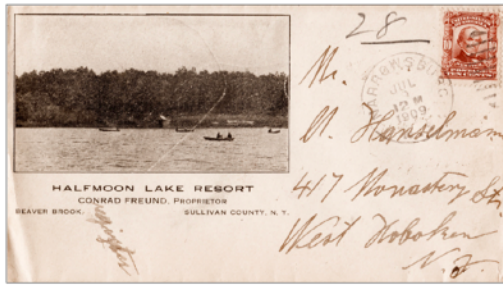 28
NARROWSBURG
JUL
12 M
1909
10
Mr.
A. Hanselmann
417 Monastery St.
West Hoboken
N. J.
HALFMOON LAKE RESORT
CONRAD FREUND, PROPRIETOR
BEAVER BROOK, SULLIVAN COUNTY, N. Y.